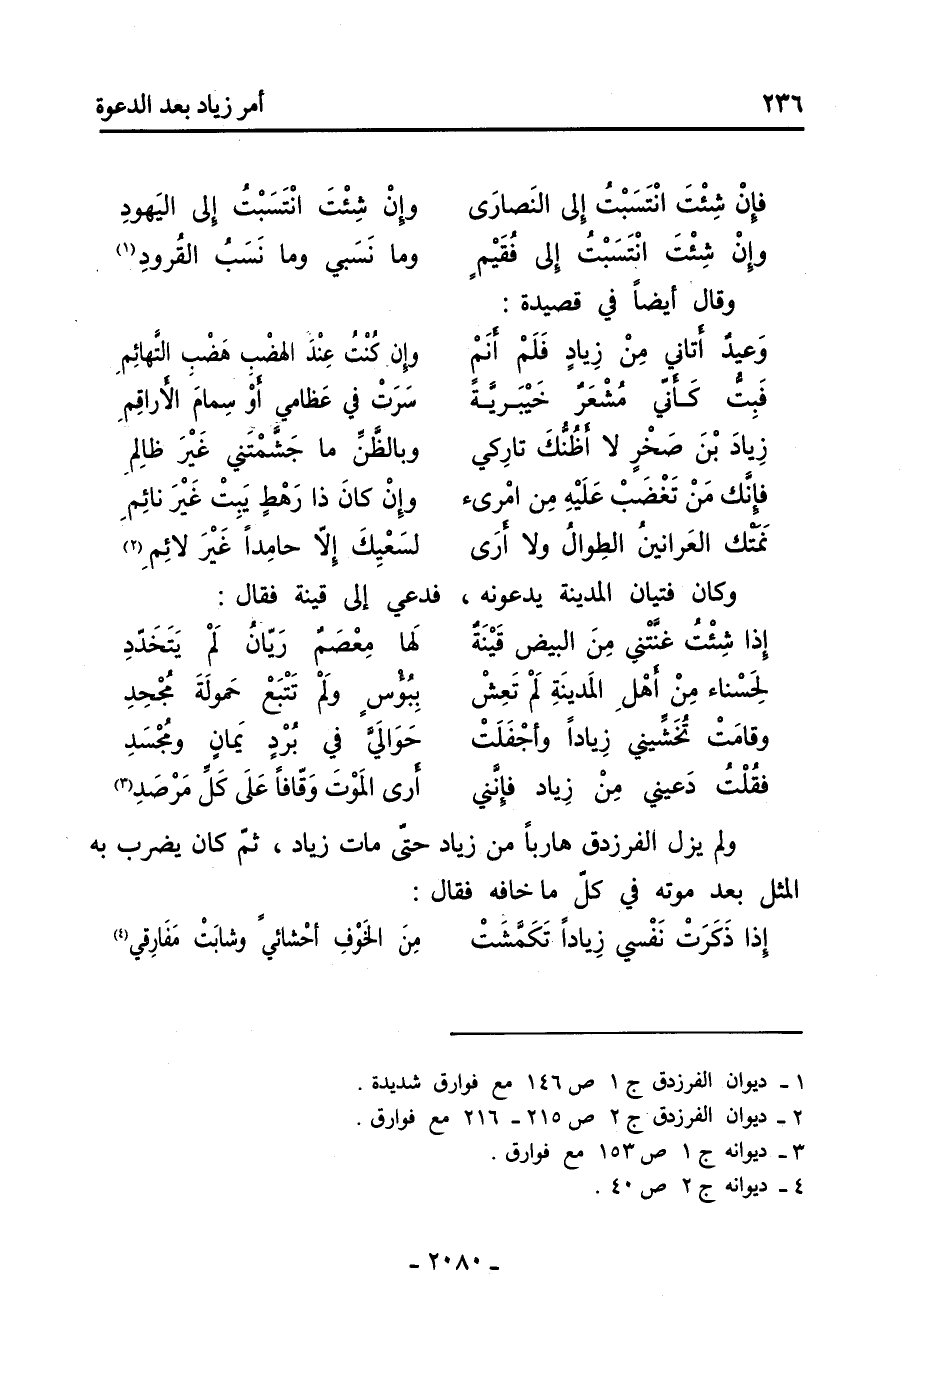 ٢٣٦ أمر زياد بعد الدعوة
فإنْ شِئْتَ انْتَسَبْتُ إلى النَصارَى وإنْ شِئْتَ انْتَسَبْتُ إلى اليَهودِ
وإنْ شِئْتَ انْتَسَبْتُ إلى فُقَيْمٍ وما نَسَبي وما نَسَبُ القُرودِ(١)
وقال أيضاً في قصيدة :
وَعيدٌ أَتاني مِنْ زِيادٍ فَلَمْ أَنَمْ وإن كُنْتُ عِنْدَ الهضْبِ هَضْبِ التَّهائِمِ
فَبِتُّ كَـأَنّي مُشْعَرٌ خَيْبَـرِيَّـةً سَرَتْ في عَظامي أَوْ سِمامَ الأَراقِمِ
زِيادَ بْنَ صَخْرٍ لا أَظُنُّكَ تارِكي وبالظَّنِّ ما جَشَّمْتَني غَيْرَ ظالِمِ
فإنَّك مَنْ تَغْضَبْ عَلَيْهِ مِن امْرىء وإنْ كانَ ذا رَهْطٍ يَبِتْ غَيْرَ نائِمِ
نَمَتْك العَرانينُ الطِوالُ ولا أَرَى لسَعْيِكَ إلّا حامِداً غَيْرَ لائِمِ(٢)
وكان فتيان المدينة يدعونه ، فدعي إلى قينة فقال :
إذا شِئْتُ غنَّتْني مِنَ البيض قَيْنَةٌ لَها مِعْصَمٌ رَيّانُ لَمْ يَتَخَدّدِ
لِحَسْناء مِنْ أَهْلِ المَدينَةِ لَمْ تَعِشْ بِبُؤْسٍ ولَمْ تَتْبَعْ حَمولَةَ مُجْحِدِ
وقامَتْ تُخَشِّيني زِياداً وأجْفَلَتْ حَوَالَيَّ في بُرْدٍ يَمانٍ ومُجْسَدِ
فقُلْتُ دَعيني مِنْ زِياد فإنَّني أَرى المَوْتَ وَقّافاً عَلَى كَلِّ مَرْصَدِ(٣)
ولم يزل الفرزدق هارباً من زياد حتّى مات زياد ، ثمّ كان يضرب به
المثل بعد موته في كلّ ما خافه فقال :
إذا ذَكَرَتْ نَفْسي زِياداً تَكَمَّشَتْ مِنَ الخَوْفِ أحْشائيً وشابَتْ مَفَارِقي(٤)
١ ـ ديوان الفرزدق ج ١ ص ١٤٦ مع فوارق شديدة .
٢ ـ ديوان الفرزدق ج ٢ ص ٢١٥ ـ ٢١٦ مع فوارق .
٣ ـ ديوانه ج ١ ص ١٥٣ مع فوارق .
٤ ـ ديوانه ج ٢ ص ٤٠ .
ـ ٢٠٨٠ ـ